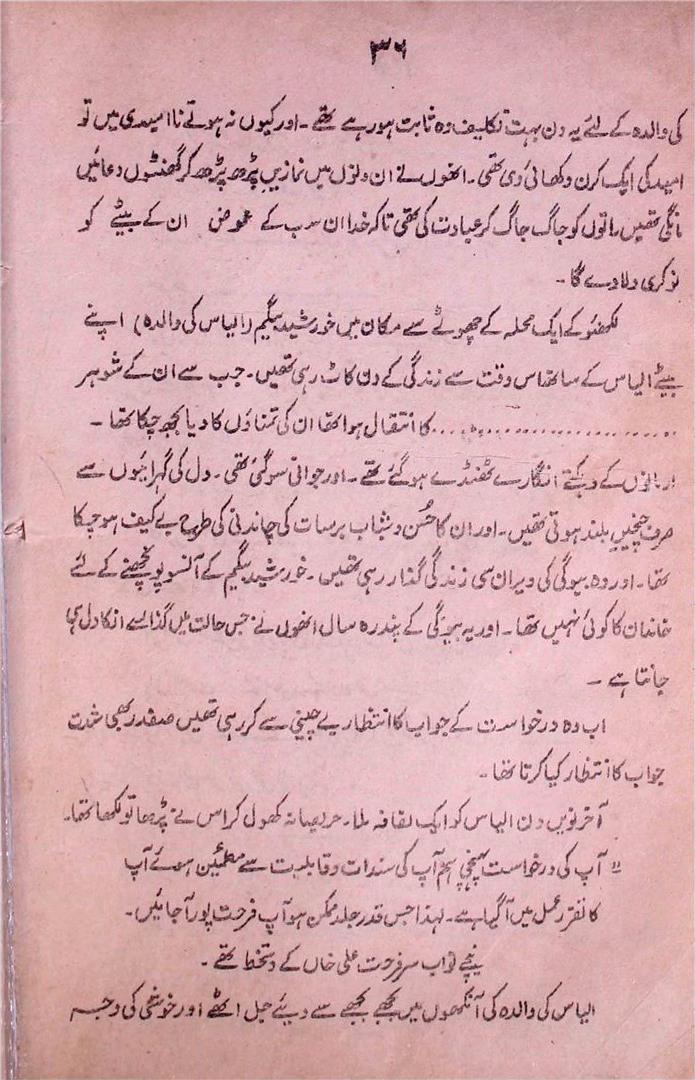 ۳۶
کی والدہ کے لئے یہ دن بہت تکلیف دہ ثابت ہو رہے تھے ۔ اور کیوں نہ ہوتے نا امیدی میں تو
امید کی ایک کرن دکھائی دی تھی ۔ انھوں نے ان دنوں میں نمازیں پڑھ پڑھ کر گھنٹوں دعائیں
مانگی تھیں راتوں کو جاگ جاگ کر عبادت کی تھی تاکہ خدا ان سب کے عوض ان کے بیٹے کو
نوکری دلا دے گا ۔
لکھنؤ کے ایک محلہ کے چھوٹے سے مکان میں خورشید بیگم (الیاس کی والدہ) اپنے
بیٹے الیاس کے ساتھ اس وقت سے زندگی کے دن کاٹ رہی تھیں ۔ جب سے ان کے شوہر
........................ کا انتقال ہوا تھا ان کی تمناؤں کا دیا بجھ چکا تھا ۔
ارمانوں کے دہکتے انگارے ٹھنڈے ہو گئے تھے ۔ اور جوانی سو گئی تھی ۔ دل کی گہرائیوں سے
صرف چیخیں بلند ہوتی تھیں ۔ اور ان کا حُسن و شباب برسات کی چاندنی کی طرح بے کیف ہو چکا
تھا ۔ اور وہ بیوگی کی ویران سی زندگی گذار رہی تھیں ۔ خورشید بیگم کے آنسو پونچھنے کے لئے
خاندان کا کوئی نہیں تھا ۔ اور یہ بیوگی کے پندرہ سال انھوں نے جس حالت میں گذارے انکا دل ہی
جانتا ہے ۔
اب وہ درخواست کے جواب کا انتظار بے چینی سے کر رہی تھیں صفدر بھی شدت
جواب کا انتظار کیا کرتا تھا ۔
آخر نویں دن الیاس کو ایک لفافہ ملا ۔ حریصانہ کھول کر اس نے پڑھا تو لکھا تھا ۔
" آپ کی درخواست پہنچی ہم آپ کی سندات و قابلیت سے مطمئین ہوئے آپ
کا تقرر عمل میں آ گیا ہے ۔ لہذا جس قدر جلد ممکن ہو آپ فرحت پور آ جائیں ۔
نیچے نواب سر فرحت علی خاں کے دستخط تھے ۔
الیاس کی والدہ کی آنکھوں میں بجھے بجھے سے دیئے جل اٹھے اور خوشی کی وجہ